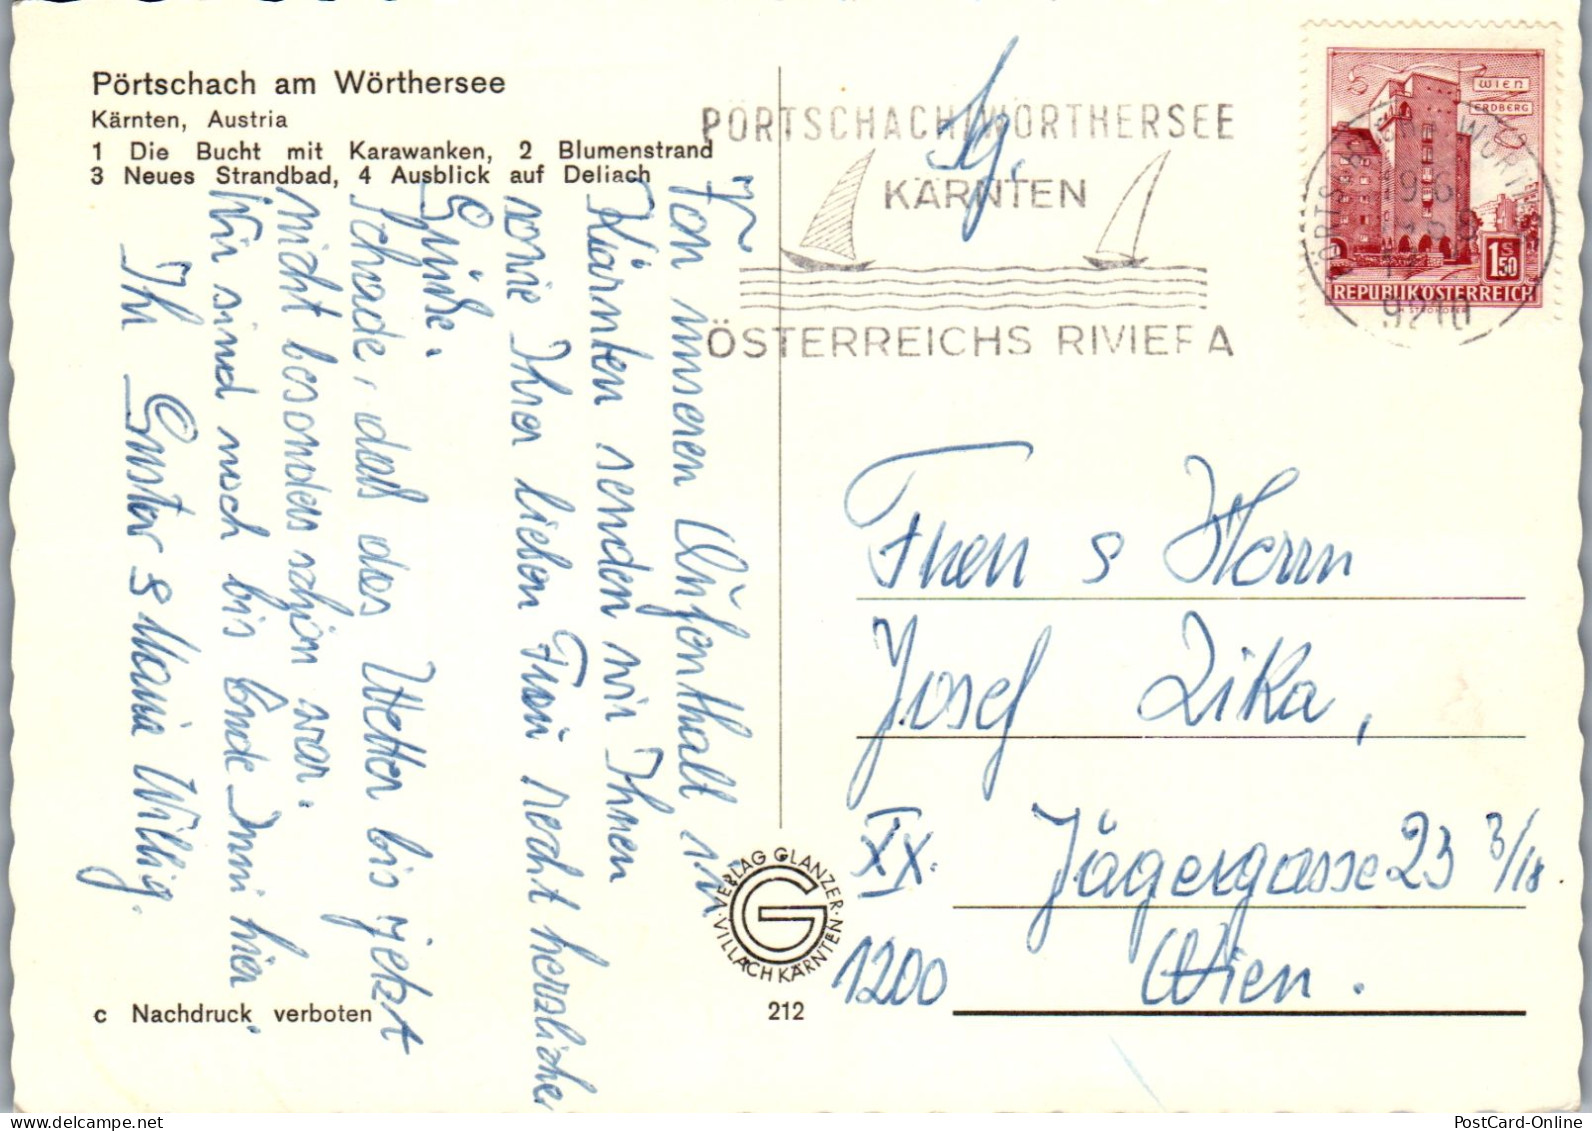 Pörtschach am Wörthersee
Kärnten, Austria
1 Die Bucht mit Karawanken, 2 Blumenstrand
3 Neues Strandbad, 4 Ausblick auf Deliach
Von unseren Aufenthalt in
Kärnten senden wir Ihnen
sowie Ihrer lieben Frau recht herzliche
Grüße.
Schade, daß das Wetter bis jetzt
nicht besonders schön war.
Wir sind noch bis Ende Juni hier.
Ihr Gustav & Maria Willig.
c Nachdruck verboten
VERLAG GLANZER · VILLACH KÄRNTEN ·
G
212
PÖRTSCHACH/WÖRTHERSEE
KÄRNTEN
ÖSTERREICHS RIVIERA
WIEN
ERDBERG
1 S 50
REPUBLIK ÖSTERREICH
9210
Frau & Herrn
Josef Zika,
XX. Jägergasse 23 3/18
1200 Wien.
PostCard-Online